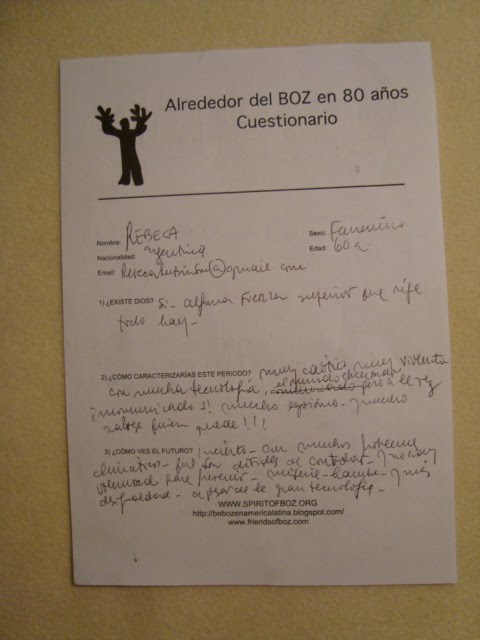 Alrededor del BOZ en 80 años
Cuestionario
Nombre: REBECA
Sexo: Femenino
Nacionalidad: Argentina
Edad: 60 a.
Email: @gmail.com
1) ¿EXISTE DIOS? Si - alguna Fuerza superior que rige
todo hay -
2) ¿CÓMO CARACTERIZARÍAS ESTE PERIODO? muy caótico, muy violento
con mucha tecnología, el mundo
pero a la vez
incomunicado!! mucho egoísmo - mucho
salve quien puede!!!
3) ¿CÓMO VES EL FUTURO? Incierto - con muchos problemas
climáticos - que son difíciles de controlar - y no hay
voluntad para - miseria - hambre - más
desigualdad - a pesar de la gran tecnología -
WWW.SPIRITOFBOZ.ORG
http://bebozenamericalatina.blogspot.com/
www.friendsofboz.com